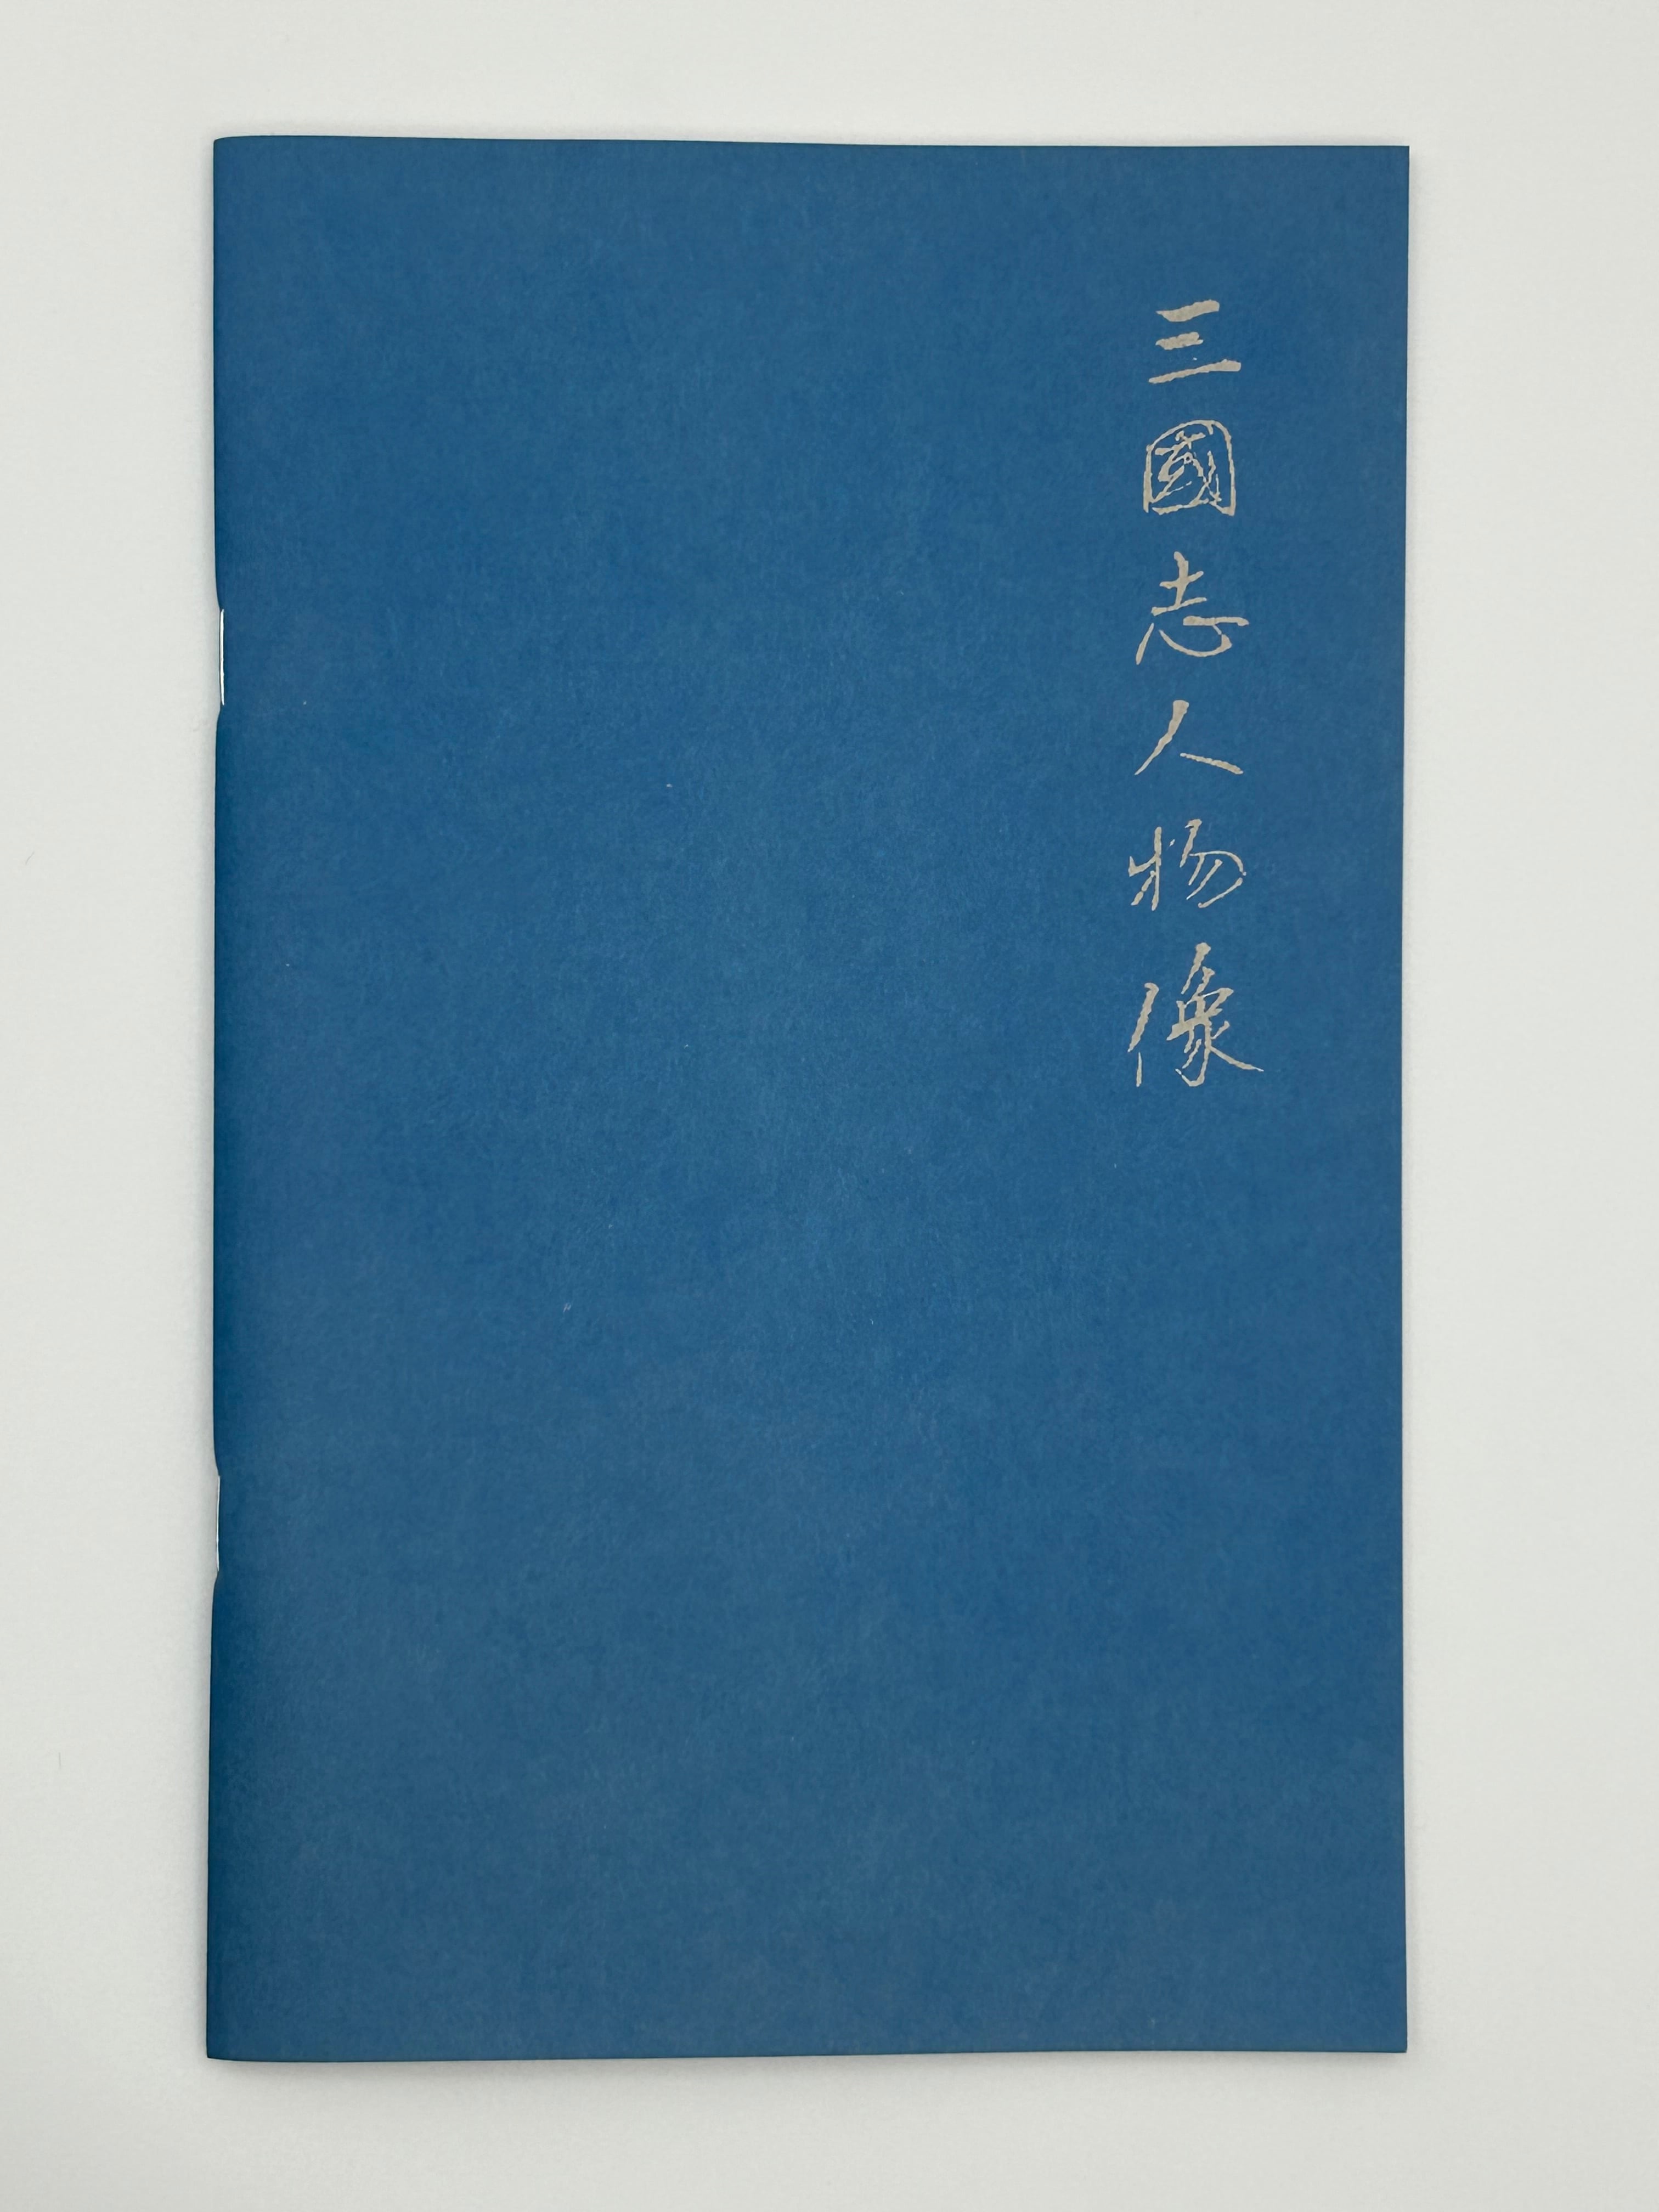 三國志人物像